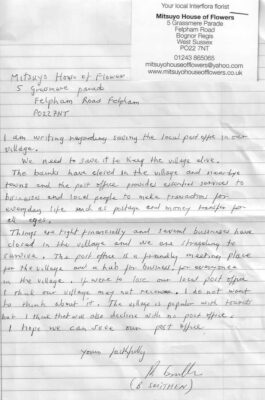 Your local Interflora florist
Mitsuyo House of Flowers
5 Grassmere Parade
Felpham Road
Bognor Regis
West Sussex
PO22 7NT
01243 865065
mitsuyohouseofflowers@yahoo.com
www.mitsuyohouseofflowers.co.uk
Mitsuyo House of Flower
5 Grassmere parade
Felpham Road Felpham
PO22 7NT
I am writing regarding saving the local post office in our
village.
We need to save it to keep the village alive.
The banks have closed in the village and nearbye
towns and the post office provides essential services to
business and local people to make transaction for
everyday life such as postage and money transfer for
all ages.
Things are tight financially and several business have
closed in the village and we are struggling to
survive. The post office is a friendly meeting place
for the village and a hub for business, for everyone
in the village. If were to lose our local post office
I think our village may not recover. I do not want
to think about it. The village is popular with tourists
but I think that will also decline with no post office.
I hope we can save our post office
Yours faithfully